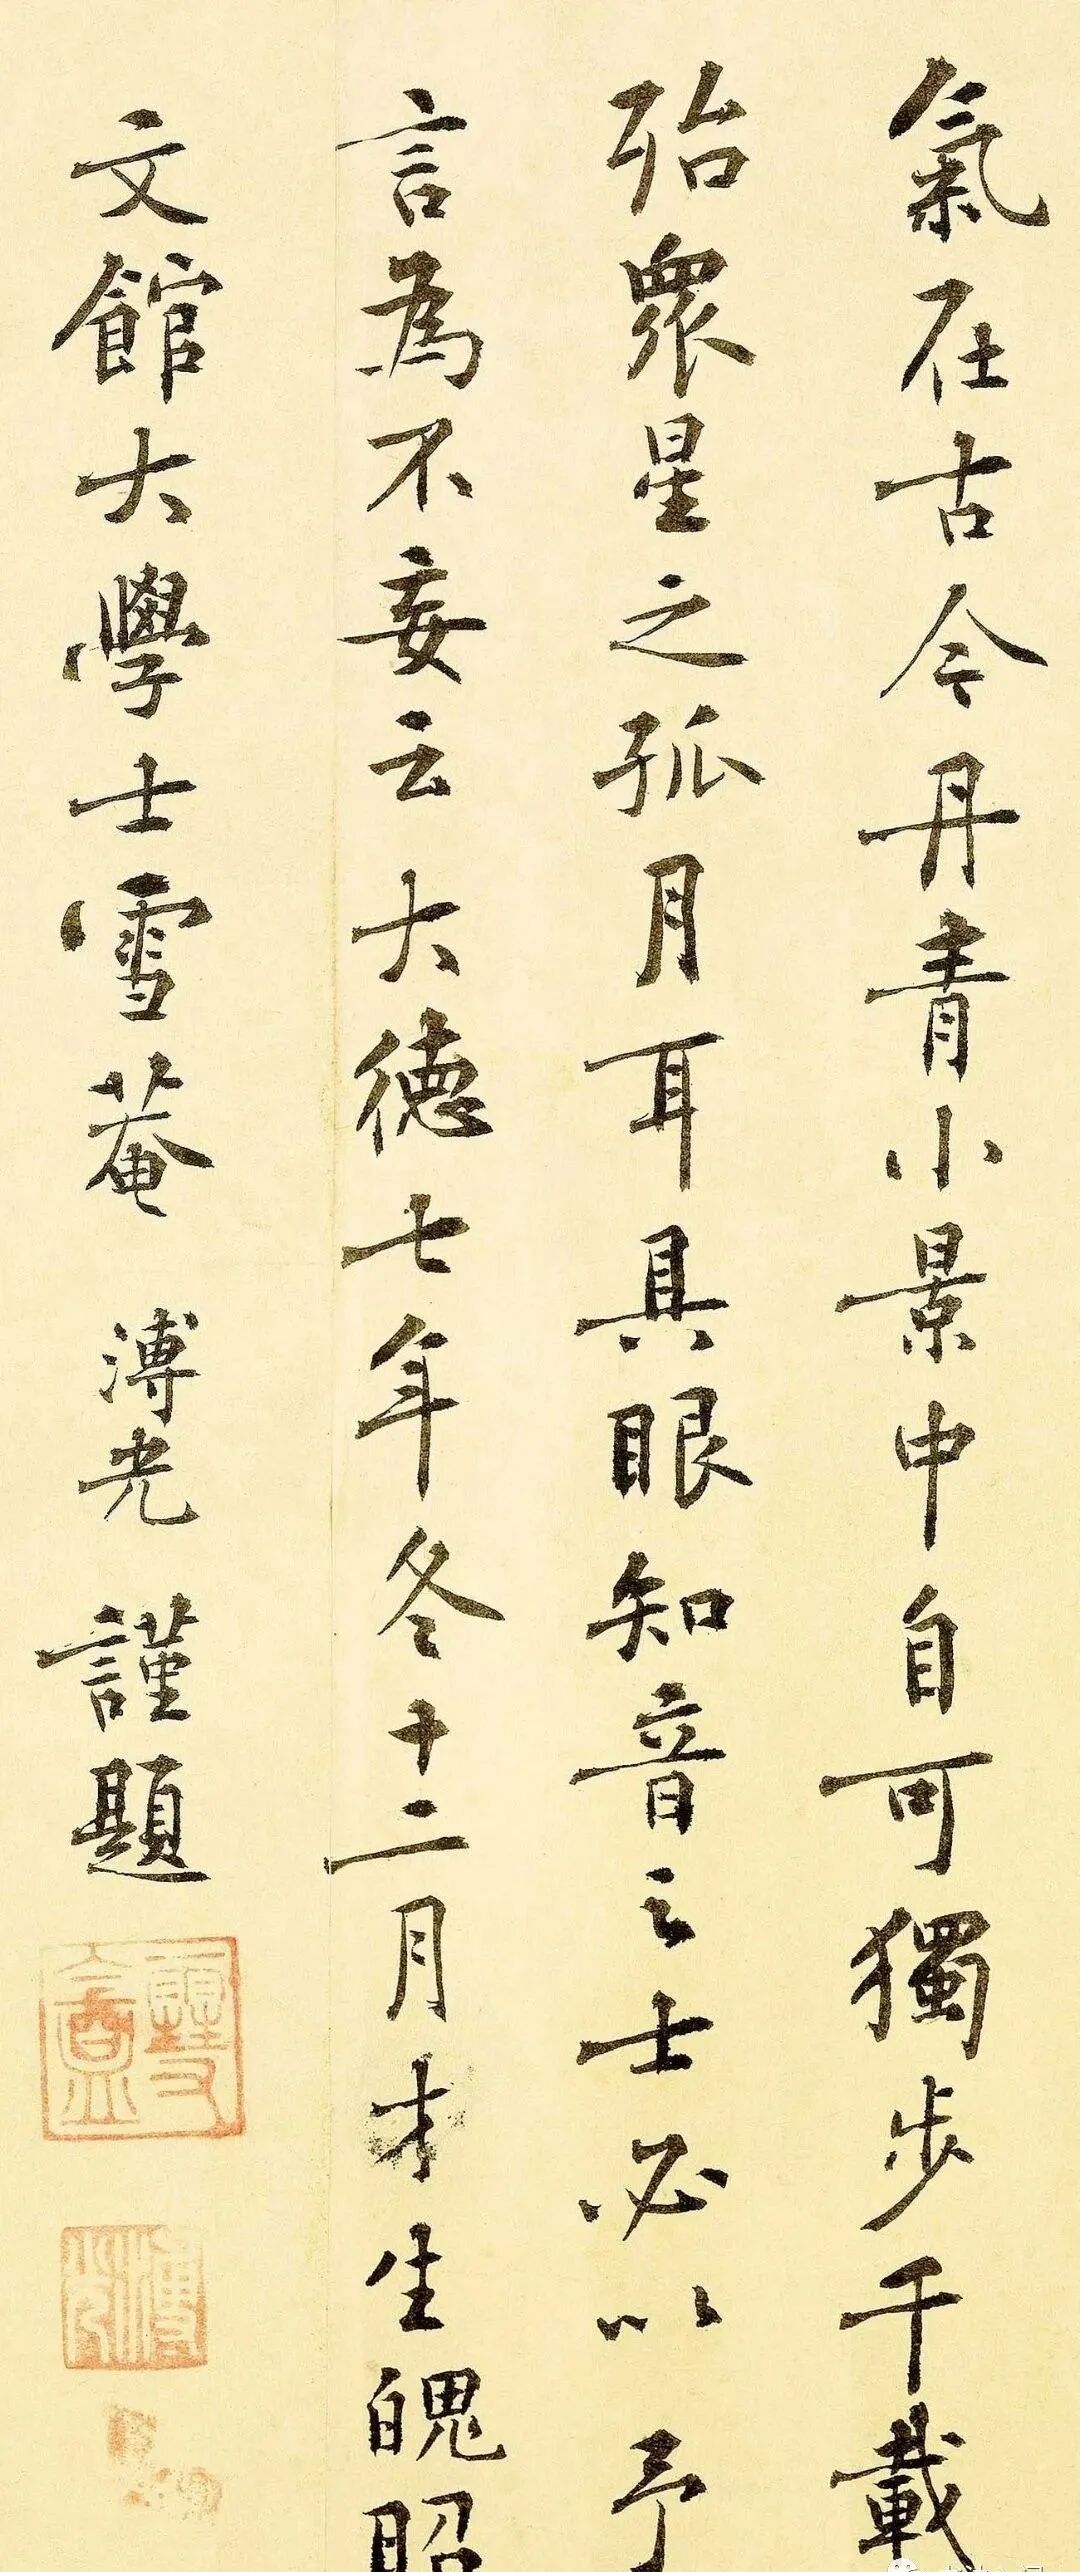 氣在古今丹青小景中自可獨步千載
殆眾星之孤月耳具眼知音之士必以予
言為不妄云大德七年冬十二月才生魄昭
文館大學士雪菴溥光謹題
溥光